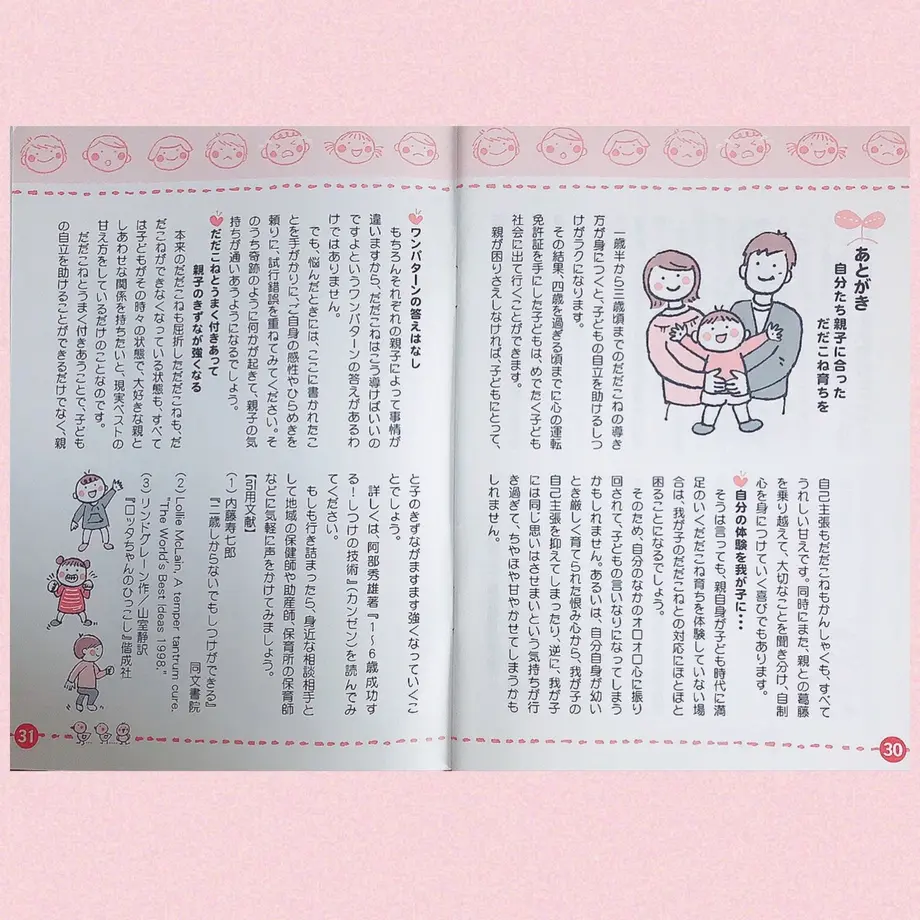 あとがき
自分たち親子に合った
だだこね育ちを
一歳半から三歳頃までのだだこねの導き
方が身につくと、子どもの自立を助けるしつ
けがラクになります。
その結果、四歳を過ぎる頃までに心の運転
免許証を手にした子どもは、めでたく子ども
社会に出て行くことができます。
親が困りさえしなければ、子どもにとって、
自己主張もだだこねもかんしゃくも、すべて
うれしい甘えです。同時にまた、親との葛藤
を乗り越えて、大切なことを聞き分け、自制
心を身につけていく喜びでもあります。
自分の体験を我が子に・・・・
そうは言っても、親自身が子ども時代に満
足のいくだだこね育ちを体験していない場
合は、我が子のだだこねとの対応にほとほと
困ることになるでしょう。
そのため、自分のなかのオロオロ心に振り
回されて、子どもの言いなりになってしまう
かもしれません。あるいは、自分自身が幼い
とき厳しく育てられた恨み心から、我が子の
自己主張を抑えてしまったり、逆に、我が子
には同じ思いはさせまいという気持ちが行
き過ぎて、ちやほや甘やかせてしまうかも
しれません。
30
ワンパターンの答えはなし
もちろんそれぞれの親子によって事情が
違いますから、だだこねはこう導けばいいの
ですよというワンパターンの答えがあるわ
けではありません。
でも、悩んだときには、ここに書かれたこ
とを手がかりに、ご自身の感性やひらめきを
頼りに、試行錯誤を重ねてみてください。そ
のうち奇跡のように何かが起きて、親子の気
持ちが通いあうようになるでしょう。
だだこねとうまく付きあって
親子のきずなが強くなる
本来のだだこねも屈折しただだこねも、だ
だこねができなくなっている状態も、すべて
は子どもがその時々の状態で、大好きな親と
しあわせな関係を持ちたいと、現実ベストの
甘え方をしているだけのことなのです。
だだこねとうまく付きあうことで、子ども
の自立を助けることができるだけでなく、親
と子のきずながますます強くなっていくこ
とでしょう。
詳しくは、阿部秀雄著『1〜6歳成功す
る!しつけの技術』(カンゼン)を読んでみ
てください。
もしも行き詰まったら、身近な相談相手と
して地域の保健師や助産師、保育所の保育師
などに気軽に声をかけてみましょう。
【引用文献】
(1)内藤寿七郎
『二歳しからないでもしつけができる』
同文書院
(2)Lollie McLain, A temper tantrum cure.
"The World's Best Ideas 1998,"
(3)リンドグレーン作/山室静訳
『ロッタちゃんのひっこし』偕成社
31